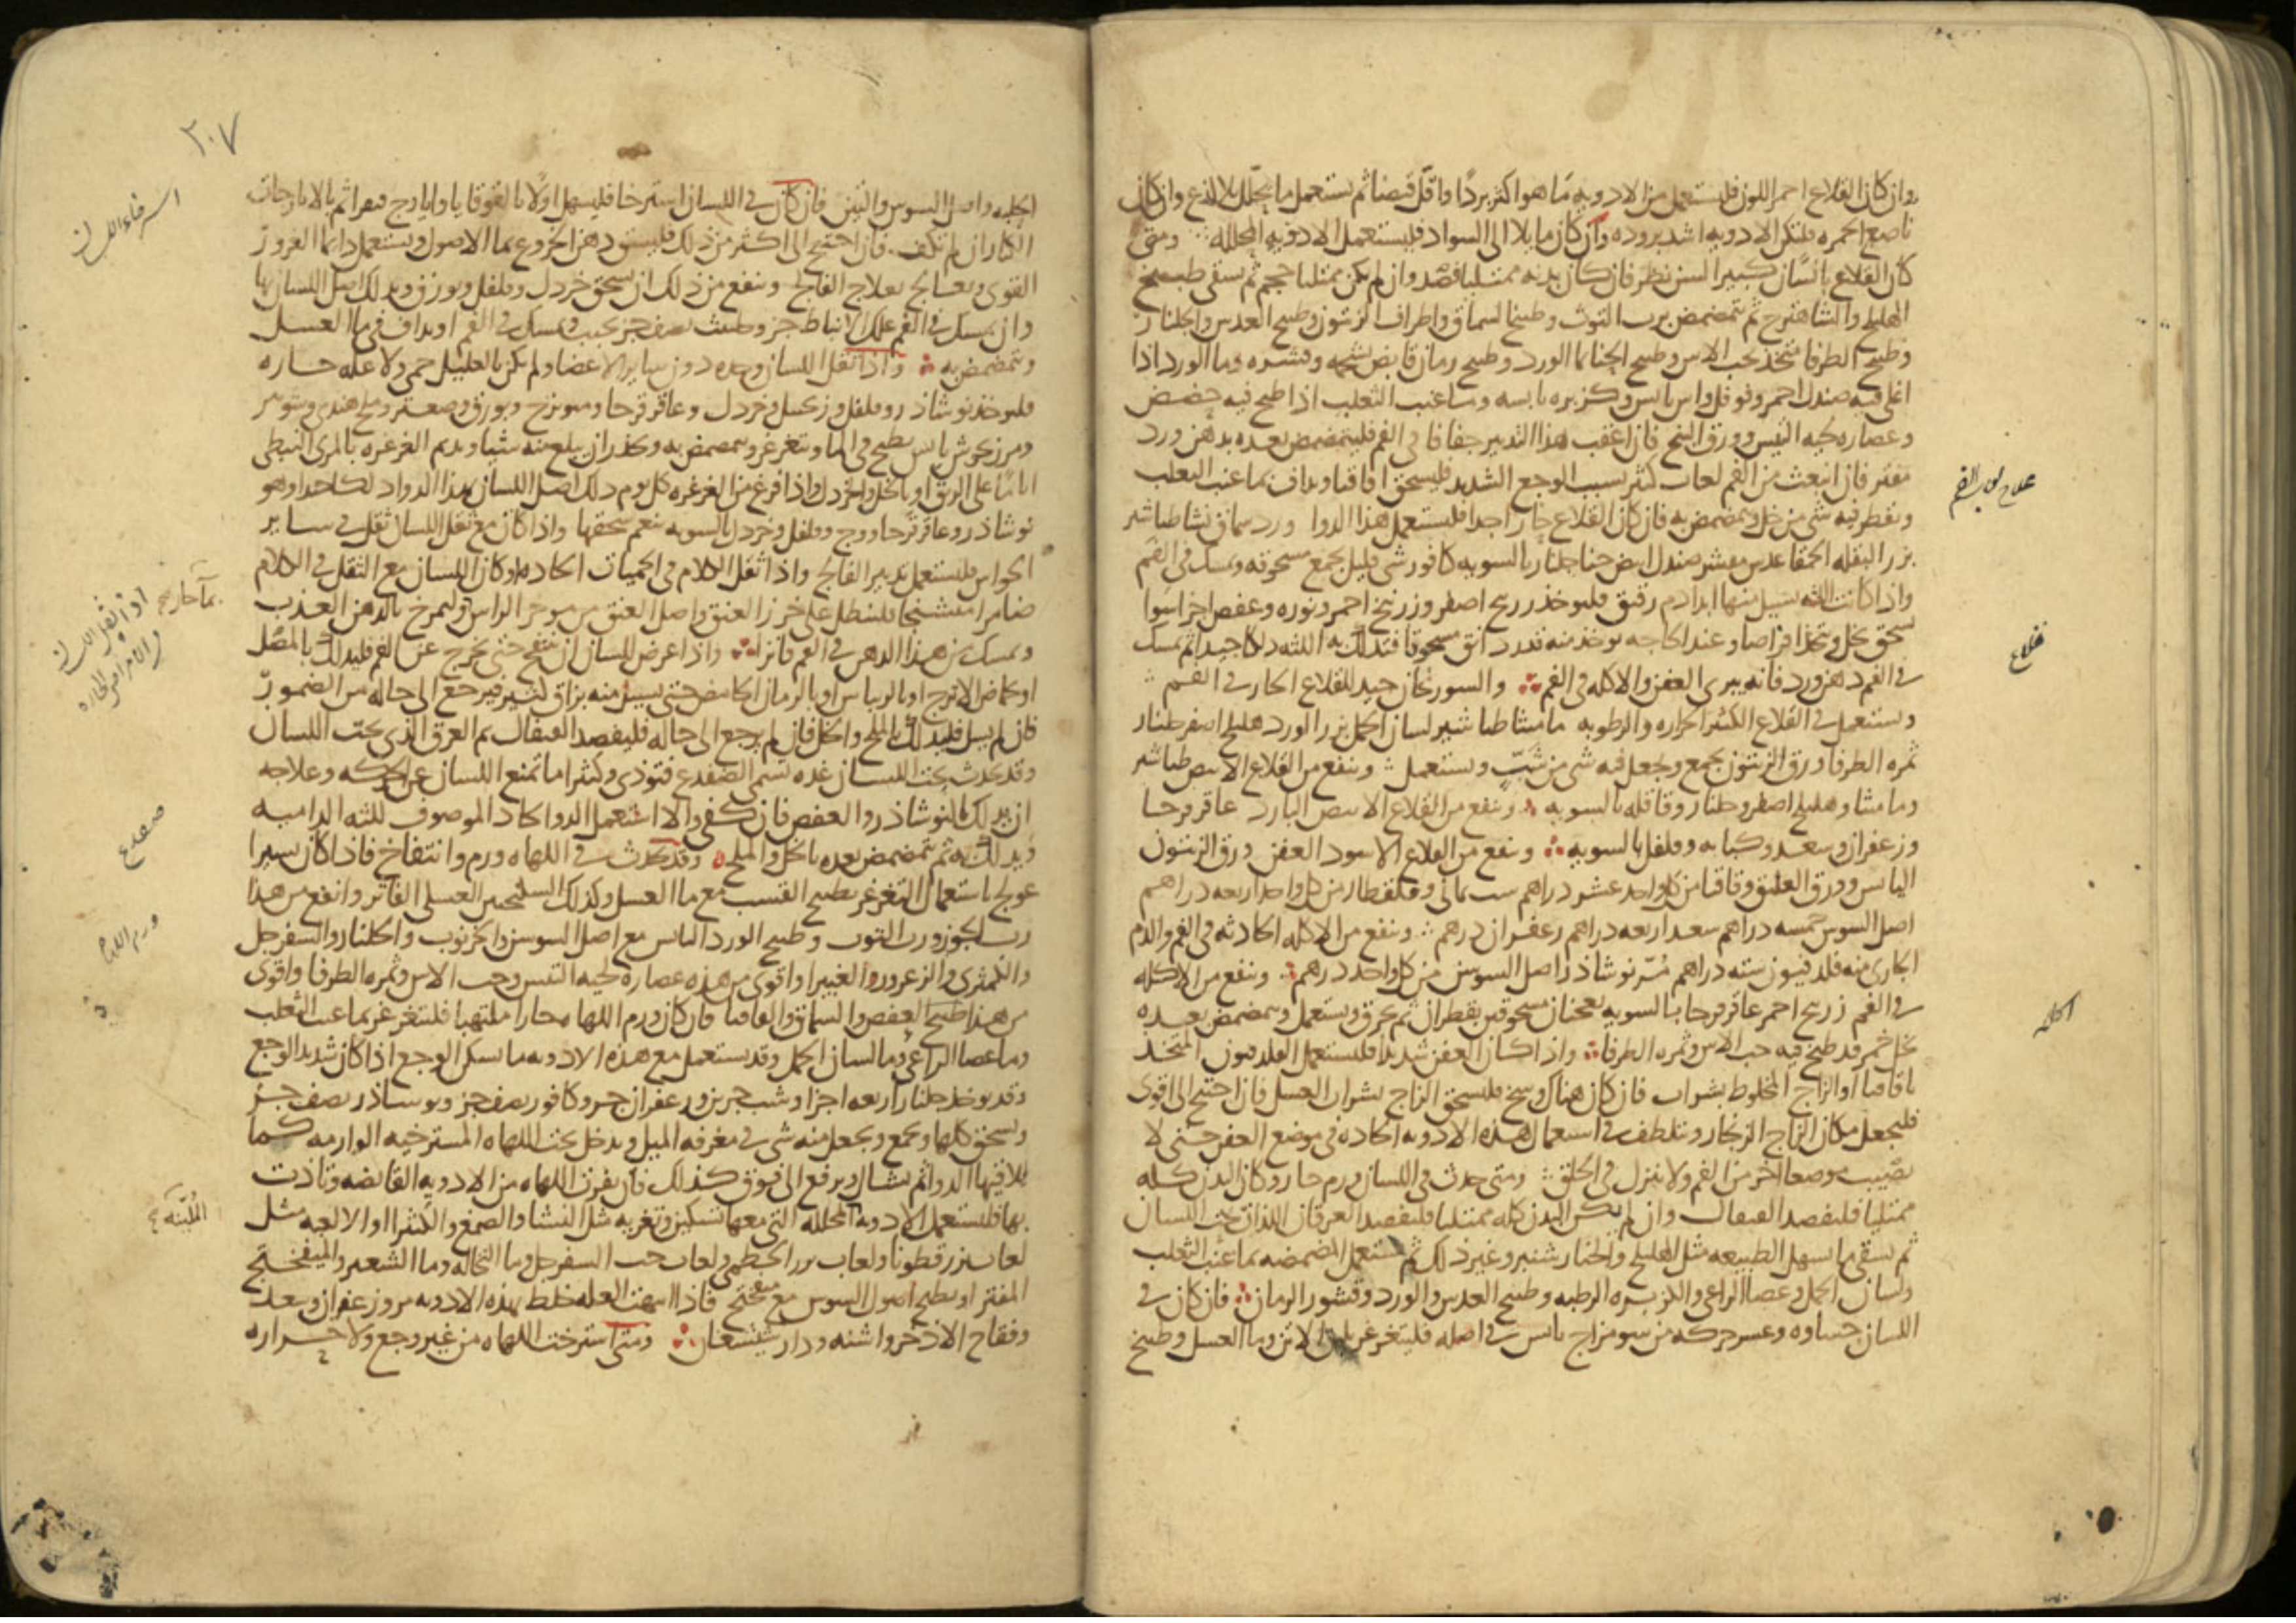 وان كان القلاع احمر اللون فليستعمل من الادويه ما هو اكثر بردا واقل قبضا ثم يستعمل ما يحلل بلا لذع وان كان
ناصع الحمره فلتكن الادويه اشد بروده وان كان مايلا الى السواد فليستعمل الادويه المحلله ومتى
كان القلاع بانسان كبير السن نظر فان كان بدنه ممتليا فصد وان لم يكن ممتليا حجم ثم يسقى طبيخ
الهليلج والشاهترج ثم يتمضمض برب التوث وطبيخ السماق واطراف الزيتون وطبيخ العدس والجلنار
وطبيخ الطرفا متخذ بحب الاس وطبيخ الحنا بما الورد وطبيخ رمان قابض بشحمه وقشره وما الورد اذا
اغلى فيه صندل احمر وفوفل واس يابس وكزبره يابسه وما عنب الثعلب اذا طبخ فيه حضض
وعصاره لحيه التيس وورق البنج فان اعقب هذا التدبير جفافا في الفم فليتمضمض بعده بدهن ورد
مفتر فان انبعث من الفم لعاب كثير بسبب الوجع الشديد فليسحق اقاقيا ويداف بما عنب الثعلب
ويقطر فيه شي من خل ويتمضمض به فان كان القلاع حارا جدا فليستعمل هذا الدوا ورد سماق نشا طباشير
بزر البقله الحمقا عدس مقشر صندل ابيض حنا جلنار بالسويه كافور شي قليل يجمع مسحوقه ويمسك في الفم
واذا كانت اللثه يسيل منها ابدا دم رقيق فليوخذ زرنيخ اصفر وزرنيخ احمر ونوره وعفص اجزا سوا
يسحق بخل ويتخذ اقراصا وعند الحاجه يوخذ منه قدر دانق مسحوقا فتدلك به اللثه دلكا جيدا ثم يمسك
في الفم دهن ورد فانه يبري العفن والاكله في الفم والسورنجان جيد للقلاع الحار في الفم
ويستعمل في القلاع الكثير الحراره والرطوبه ماميثا طباشير لسان الحمل بزر الورد هليلج اصفر جلنار
ثمره الطرفا ورق الزيتون يجمع ويجعل فيه شي من شب ويستعمل وينفع من القلاع الابيض طباشير
وماميثا وهليلج اصفر وجلنار وقاقله بالسويه وينفع من القلاع الابيض البارد عاقرقرحا
وزعفران وسعد وكبابه وفلفل بالسويه وينفع من القلاع الاسود العفن ورق الزيتون
اليابس وورق العليق وقاقيا من كل واحد عشر دراهم شب يماني وقلقطار من كل واحد اربعه دراهم
اصل السوس خمسه دراهم سعد اربعه دراهم زعفران درهم وينفع من الاكله الحادثه في الفم والدم
الجاري منه فلدفيون سته دراهم مر نوشاذر اصل السوسن من كل واحد درهم وينفع من الاكله
في الفم زرنيخ احمر عاقرقرحا بالسويه يعجنان مسحوقين بقطران ثم يحرق ويستعمل ويتمضمض بعده
بخل خمر قد طبخ فيه حب الاس وثمره الطرفا واذا كان العفن شديدا فليستعمل الفلدفيون المتخذ
باقاقيا او الزاج المخلوط بشراب فان كان هناك وسخ فليسحق الزاج بشراب العسل فان احتيج الى اقوى
فليجعل مكان الزاج الزنجار ويتلطف في استعمال هذه الادويه الحاده في موضع العفن حتى لا
تصيب موضعا اخر من الفم ولا ينزل في الحلق ومتى حدث في اللسان ورم حار وكان البدن كله
ممتليا فليفصد القيفال وان لم يكن البدن كله ممتليا فليفصد العرقان اللذان تحت اللسان
ثم يسقى ما يسهل الطبيعه مثل الهليلج والخيار شنبر وغير ذلك ثم يستعمل المضمضه بما عنب الثعلب
ولسان الحمل وعصا الراعي والكزبره الرطبه وطبيخ العدس والورد وقشور الرمان فان كان في
اللسان جساوه وعسر حركه من سو مزاج يابس في اصله فليتغرغر بلبن الاتن وما العسل وطبيخ
علاج لعاب الفم
قلاع
اكله
٣٠٧
الحلبه واصل السوس والتين فان كان في اللسان استرخا فليسهل اولا بالقوقايا وايارج فيقرا ثم بالايارجات
الكبار ان لم تكف فان احتيج الى اكثر من ذلك فليسق دهن الخروع بما الاصول ويستعمل دايما الغرور
القوي ويعالج بعلاج الفالج وينفع من ذلك ان يسحق خردل وفلفل وبورق ويدلك اصل اللسان بها
وان يمسك في الفم علك الانباط جز وحلتيت نصف جز يحبب ويمسك في الفم او يداف في ما العسل
ويتمضمض به واذا ثقل اللسان وحده دون ساير الاعضا ولم يكن بالعليل حمى ولا عله حاره
فليوخذ نوشاذر وفلفل وزنجبيل وخردل وعاقرقرحا وميويزج وبورق وصعتر وملح هندي وشونيز
ومرزنجوش يابس يطبخ في الما ويتغرغر ويتمضمض به ويحذر ان يبلع منه شيا ويديم الغرغره بالمري النبطي
اياما على الريق او بالخل والخردل واذا فرغ من الغرغره كل يوم دلك اصل اللسان بهذا الدوا دلكا جيدا وهو
نوشاذر وعاقرقرحا ووج وفلفل وخردل بالسويه ينعم سحقها واذا كان مع ثقل اللسان ثقل في ساير
الحواس فليستعمل تدبير الفالج واذا ثقل الكلام في الحميات الحاده وكان اللسان مع الثقل في الكلام
ضامرا متشنجا فلينطل على خرز العنق واصل العنق من موخر الراس وليمرخ بالدهن العذب
ويمسك من هذا الدهن في الفم فاترا واذا عرض للسان ان ينتفخ حتى يخرج عن الفم فليدلك بالمصل
او بحماض الاترج او بالريباس او بالرمان الحامض حتى يسيل منه بزاق كثير فيرجع الى حاله من الضمور
فان لم يسل فليدلك بالملح والخل فان لم يرجع الى حاله فليفصد القيفال ثم العرق الذي تحت اللسان
وقد يحدث تحت اللسان غده تسمى الضفدع فتوذي وكثيرا ما تمنع اللسان عن الحركه وعلاجه
ان يدلك بالنوشاذر والعفص فان كفى والا استعمل الدوا الحاد الموصوف للثه الداميه
ويدلك به ثم يتمضمض بعده بالخل والملح وقد يحدث في اللهاه ورم وانتفاخ فاذا كان يسيرا
عولج باستعمال التغرغر بطبيخ القسب مع ما العسل وكذلك السكنجبين العسلي الفاتر وانفع من هذا
رب الجوز ورب التوث وطبيخ الورد اليابس مع اصل السوسن والخرنوب والجلنار والسفرجل
والكمثرى والزعرور والغبيرا واقوى من هذه عصاره لحيه التيس وحب الاس وثمره الطرفا واقوى
من هذا طبيخ العفص والسماق والقاقيا فان كان ورم اللهاه حارا ملتهبا فليتغرغر بما عنب الثعلب
وما عصا الراعي وما لسان الحمل وقد يستعمل مع هذه الادويه ما يسكن الوجع اذا كان شديد الوجع
وقد يوخذ جلنار اربعه اجزا وشب جزين وزعفران جز وكافور نصف جز ونوشاذر نصف جز
ويسحق كلها ويجمع ويجعل منه شي في مغرفه الميل ويدخل تحت اللهاه المسترخيه الوارمه كما
يلاقيها الدوا ثم يشال ويرفع الى فوق كذلك فان نفرت اللهاه من الادويه القابضه وتاذت
بها فليستعمل الادويه المحلله التي معها تسكين وتغريه مثل النشا والصمغ والكثيرا او الالعبه مثل
لعاب بزرقطونا ولعاب بزر الخطمي ولعاب حب السفرجل وما النخاله وما الشعير والميفختج
المفتر او بطبيخ اصول السوس مع ميفختج فاذا انتهت العله خلط بهذه الادويه مر وزعفران وسعد
وفقاح الاذخر واشنه ودار شيشغان ومتى استرخت اللهاه من غير وجع ولا حراره
استرخاء اللسان
اذا ثقل اللسان
والامراض الحاره
ضفدع
ورم اللهاة